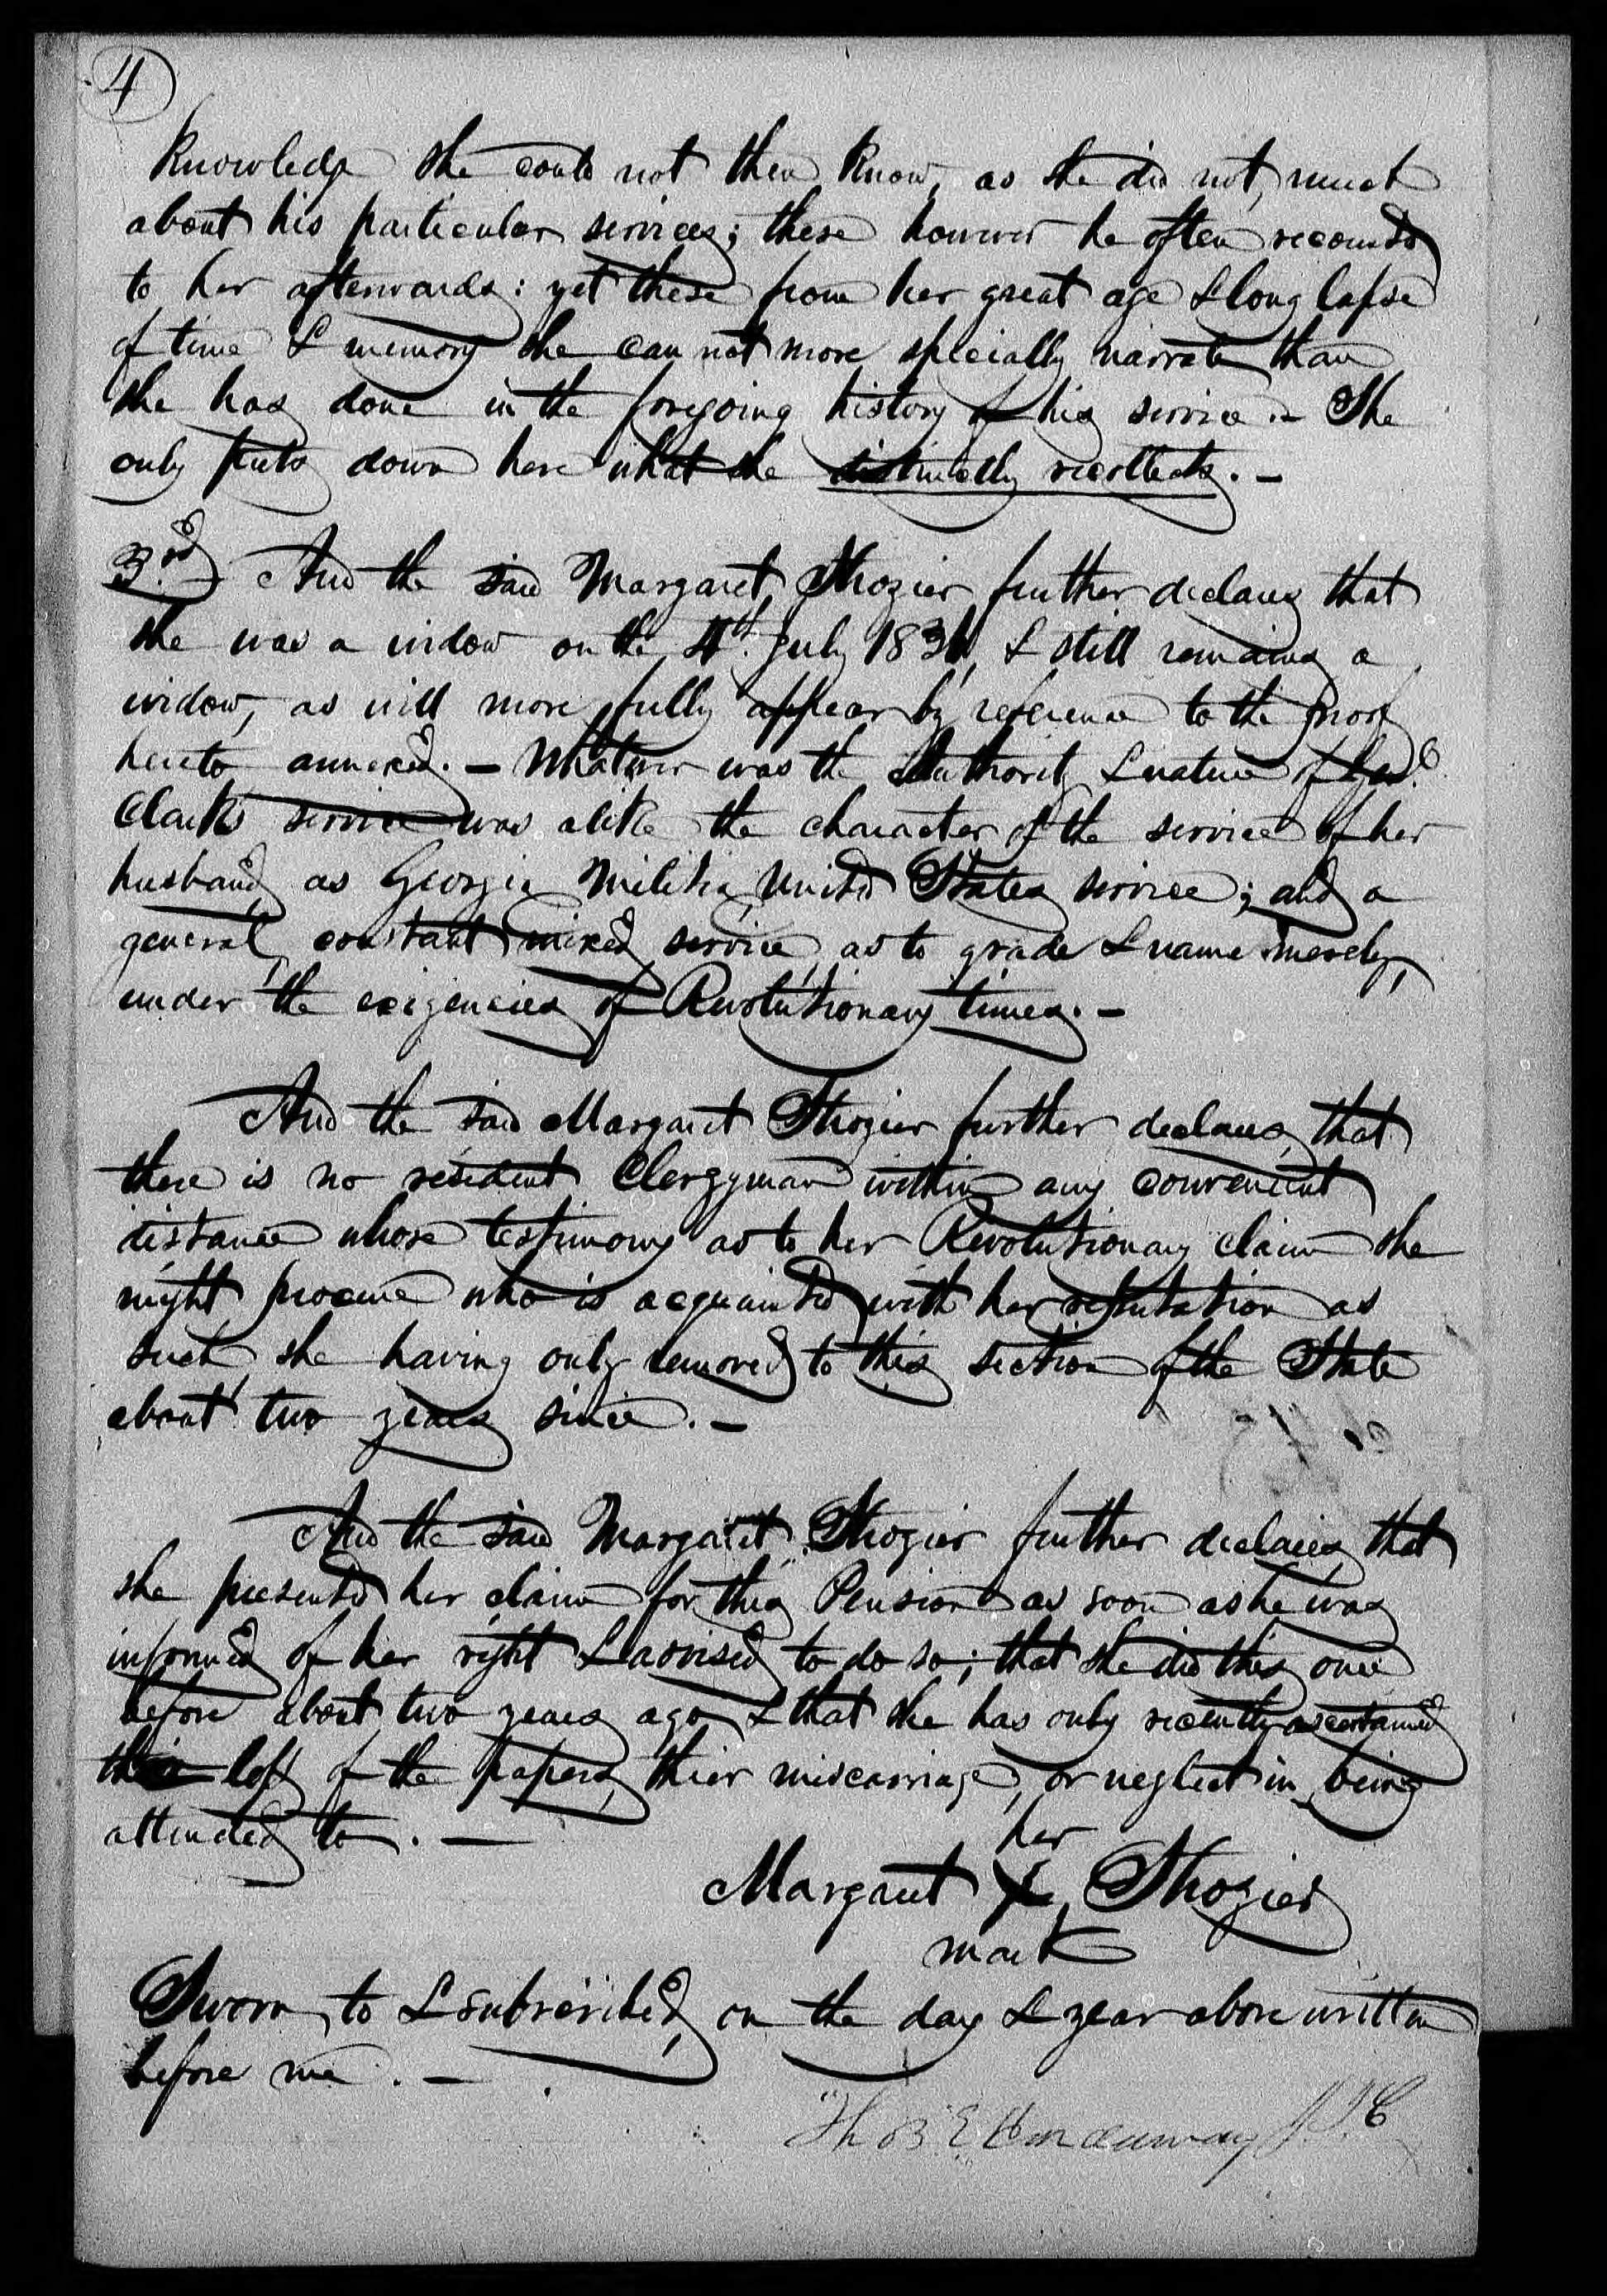 4
Knowledge she could not then know, as she did not, much
about his particular services; these however he often recounted
to her afterwards: yet these from her great age & long lapse
of time & memory she can not more specially narrate than
she has done in the foregoing history of his service – She
only puts down here what she distinctly recollects. –
3rd And the said Margaret Strozier further declares that
she was a widow on the 4th. July 1831, & still remains a
widow, as will more fully appear by reference to the proof
hereto annexed. – Whatever was the Authority & nature of Genl.
Clarks service was alike the character of the service of her
husband, as Georgia Militia, United States service; and a
general, constant mixed service, as to grade & name merely,
under the exigencies of Revolutionary times. –
And the said Margaret Strozier further declares that
there is no resident Clergyman within any convenient
distance whose testimony as to her Revolutionary claim she
might procure who is acquainted with her reputation as
such she having only removed to this section of the State
about two years since. –
And the said Margaret Strozier further declares that
she presented her claim for this Pension as soon as he was
informed of her right & advised to do so; that she did this once
before about two years ago & that she has only recently ascertained
loss of the papers, thier miscarriage, or neglect in being
attended to. –
her
Margaret X Strozier
mark
Sworn to & subscribed, on the day & year above written
before me. –
Thos E Hardaway J.I.C